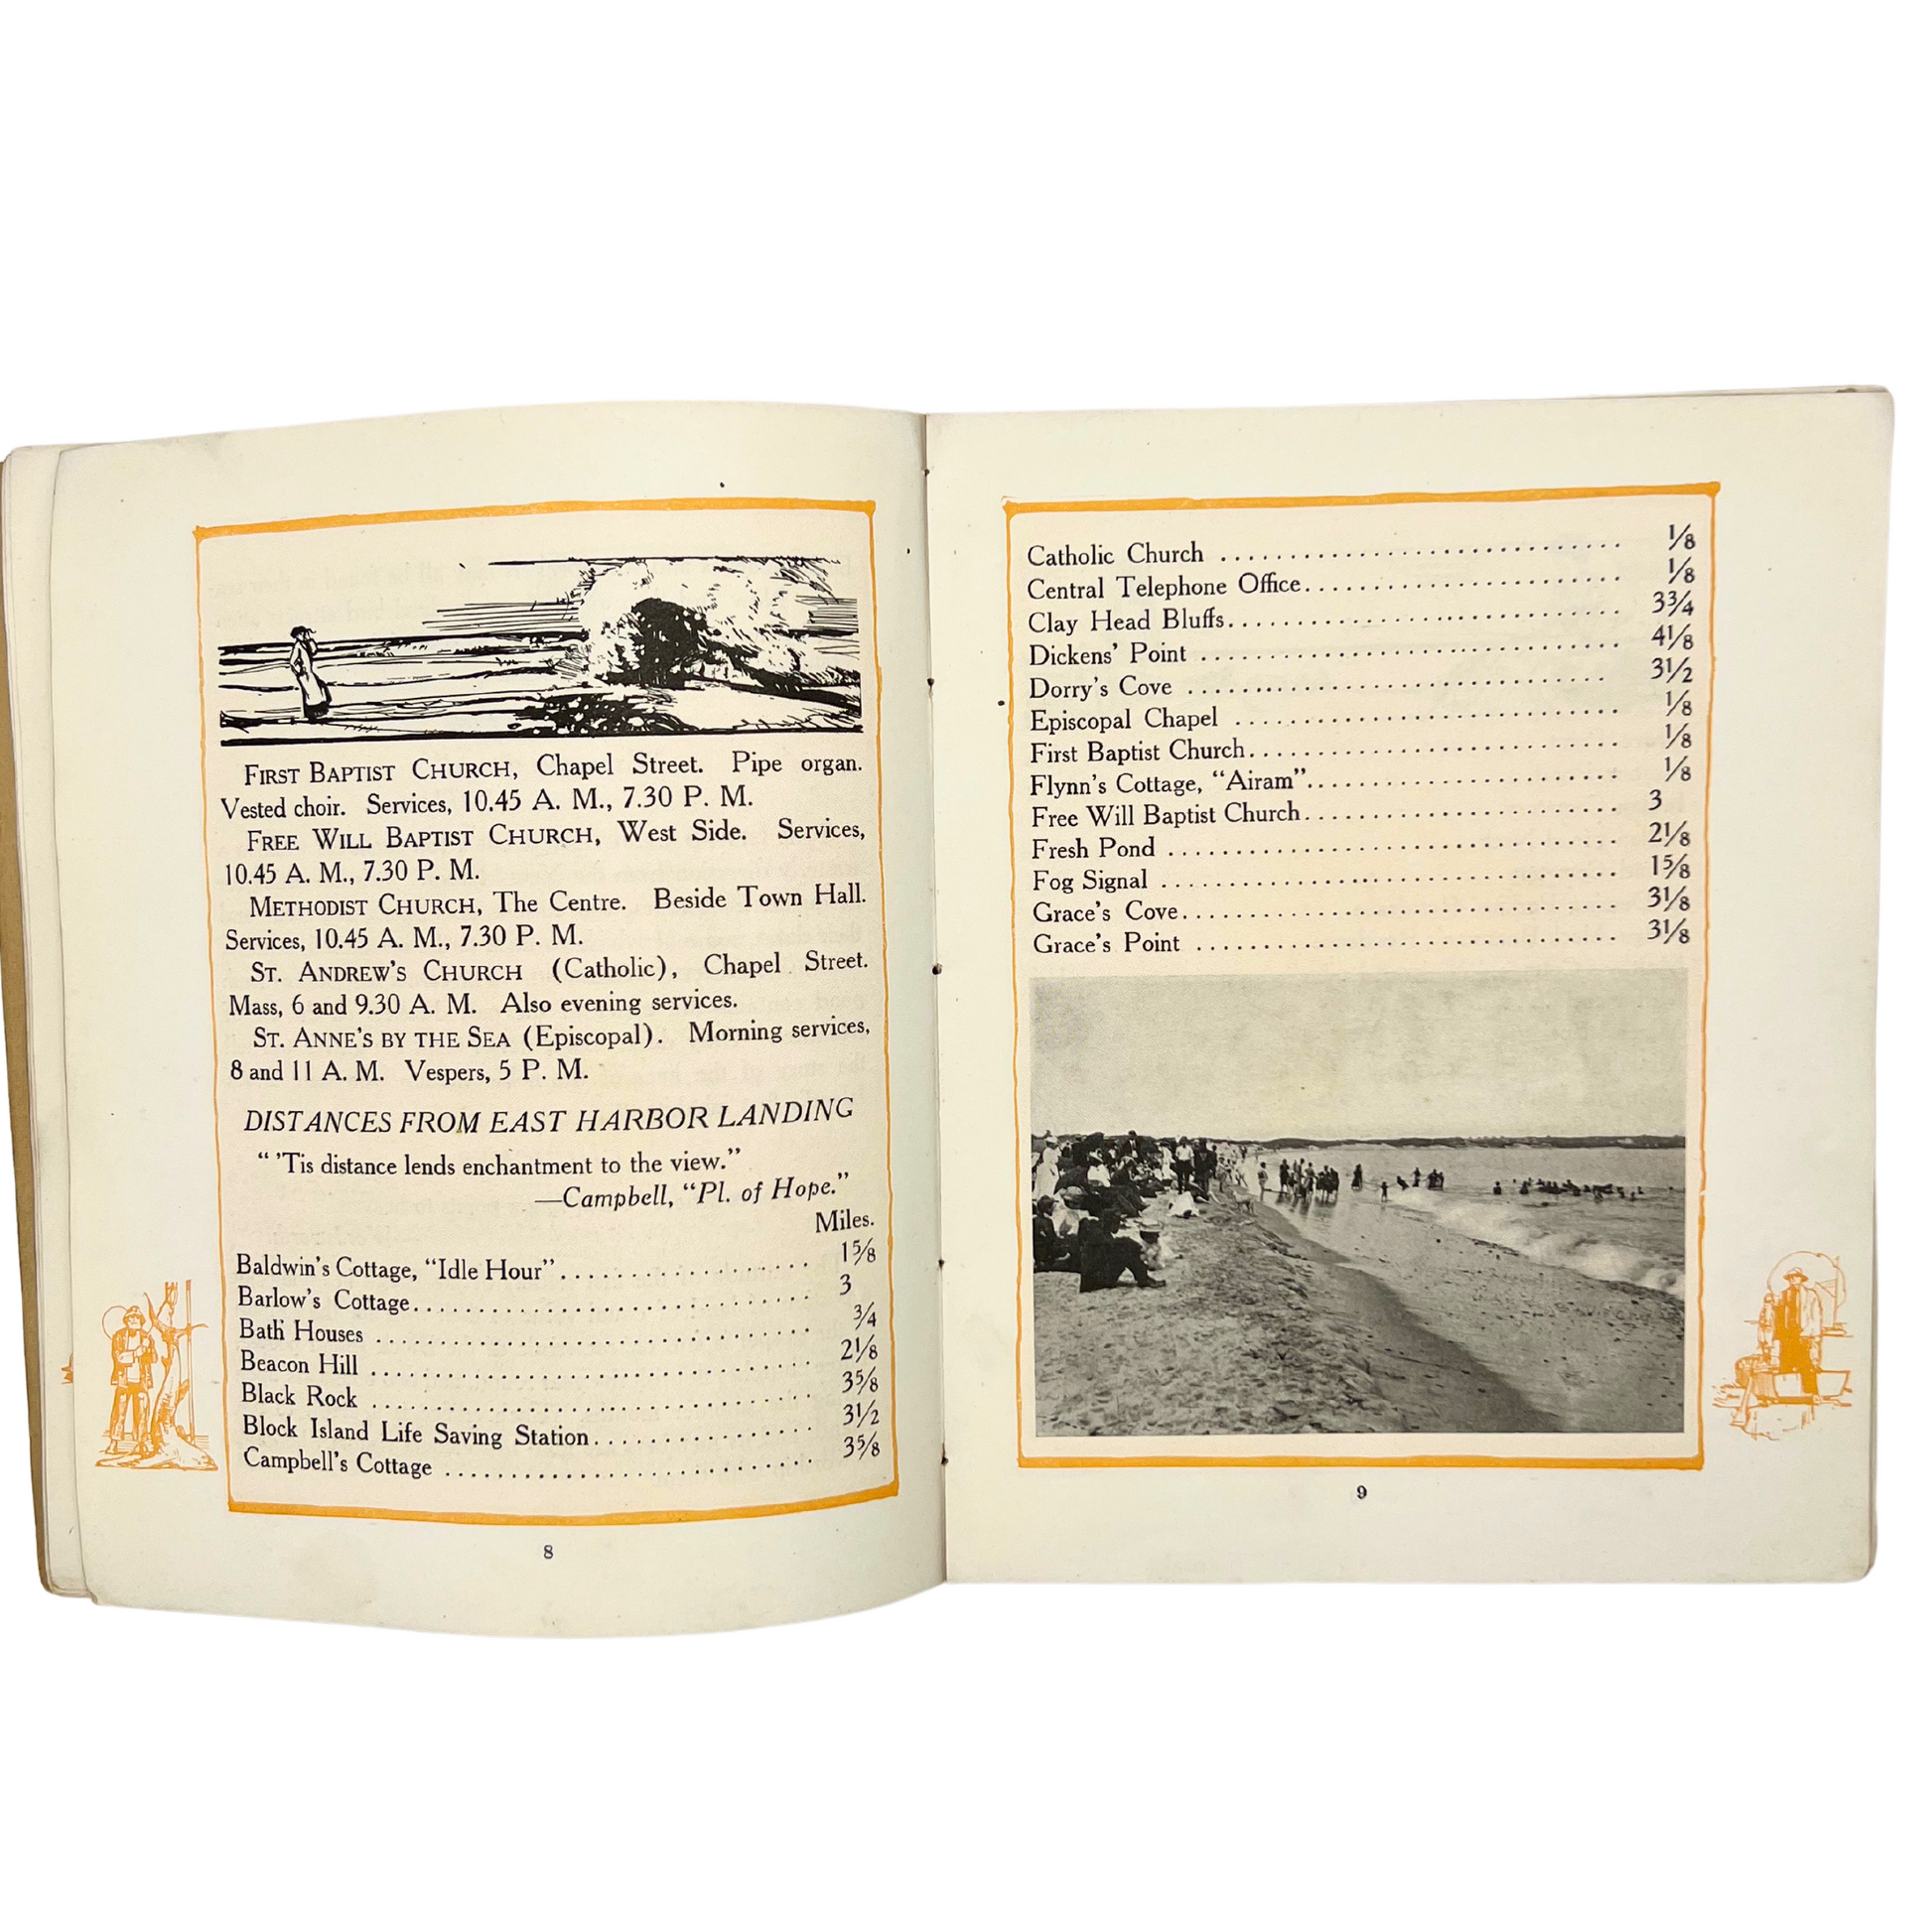 FIRST BAPTIST CHURCH, Chapel Street. Pipe organ.
Vested choir. Services, 10.45 A. M., 7.30 P. M.
FREE WILL BAPTIST CHURCH, West Side. Services,
10.45 A. M., 7.30 P. M.
METHODIST CHURCH, The Centre. Beside Town Hall.
Services, 10.45 A. M., 7.30 P. M.
ST. ANDREW'S CHURCH (Catholic), Chapel Street.
Mass, 6 and 9.30 A. M. Also evening services.
ST. ANNE'S BY THE SEA (Episcopal). Morning services,
8 and 11 A. M. Vespers, 5 P. M.
DISTANCES FROM EAST HARBOR LANDING
" 'Tis distance lends enchantment to the view."
—Campbell, "Pl. of Hope."
Miles.
Baldwin's Cottage, "Idle Hour" . . . . . . . . . . . . . . . . . . . 1⅝
Barlow's Cottage . . . . . . . . . . . . . . . . . . . . . . . . . . . . . 3
Bath Houses . . . . . . . . . . . . . . . . . . . . . . . . . . . . . . . . ¾
Beacon Hill . . . . . . . . . . . . . . . . . . . . . . . . . . . . . . . . . 2⅛
Black Rock . . . . . . . . . . . . . . . . . . . . . . . . . . . . . . . . . 3⅝
Block Island Life Saving Station . . . . . . . . . . . . . . . . 3½
Campbell's Cottage . . . . . . . . . . . . . . . . . . . . . . . . . . . 3⅝
8
Catholic Church . . . . . . . . . . . . . . . . . . . . . . . . . . . . . . ⅛
Central Telephone Office . . . . . . . . . . . . . . . . . . . . . . . ⅛
Clay Head Bluffs . . . . . . . . . . . . . . . . . . . . . . . . . . . . . 3¾
Dickens' Point . . . . . . . . . . . . . . . . . . . . . . . . . . . . . . . 4⅛
Dorry's Cove . . . . . . . . . . . . . . . . . . . . . . . . . . . . . . . . 3½
Episcopal Chapel . . . . . . . . . . . . . . . . . . . . . . . . . . . . . ⅛
First Baptist Church . . . . . . . . . . . . . . . . . . . . . . . . . . . ⅛
Flynn's Cottage, "Airam" . . . . . . . . . . . . . . . . . . . . . . . ⅛
Free Will Baptist Church . . . . . . . . . . . . . . . . . . . . . . . 3
Fresh Pond . . . . . . . . . . . . . . . . . . . . . . . . . . . . . . . . . 2⅛
Fog Signal . . . . . . . . . . . . . . . . . . . . . . . . . . . . . . . . . . 1⅝
Grace's Cove . . . . . . . . . . . . . . . . . . . . . . . . . . . . . . . . 3⅛
Grace's Point . . . . . . . . . . . . . . . . . . . . . . . . . . . . . . . . 3⅛
9